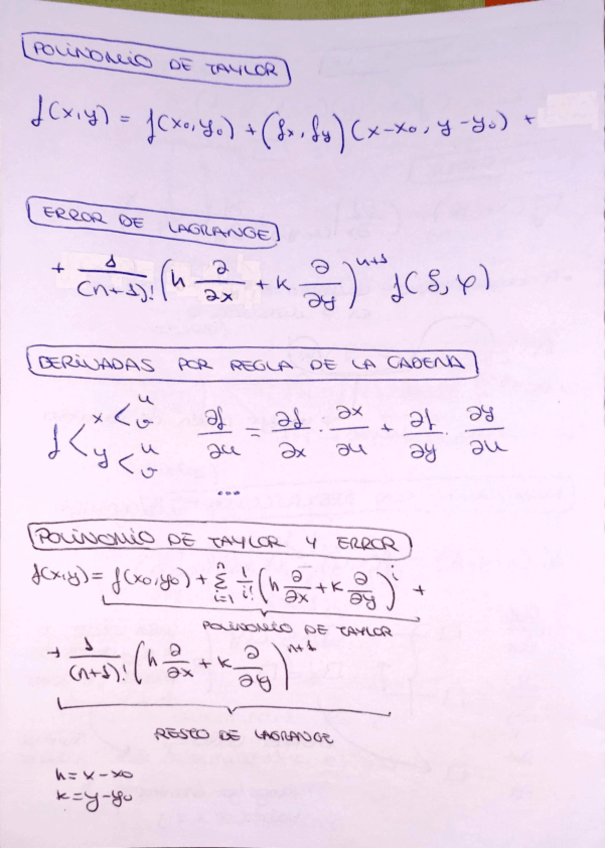 POLINOMIO DE TAYLOR
f(x,y) = f(x₀,y₀) + (fx, fy)(x-x₀, y-y₀) +
ERROR DE LAGRANGE
+ 1/(n+1)! (h ∂/∂x + k ∂/∂y)ⁿ⁺¹ f(ξ, φ)
DERIVADAS POR REGLA DE LA CADENA
f < x < u v y < u v ∂f/∂u = ∂f/∂x · ∂x/∂u + ∂f/∂y · ∂y/∂u
...
POLINOMIO DE TAYLOR Y ERROR
f(x,y) = f(x₀,y₀) + Σᵢ₌₁ⁿ 1/i! (h ∂/∂x + k ∂/∂y)ⁱ +
POLINOMIO DE TAYLOR
+ 1/(n+1)! (h ∂/∂x + k ∂/∂y)ⁿ⁺¹
RESTO DE LAGRANGE
h = x - x₀
k = y - y₀